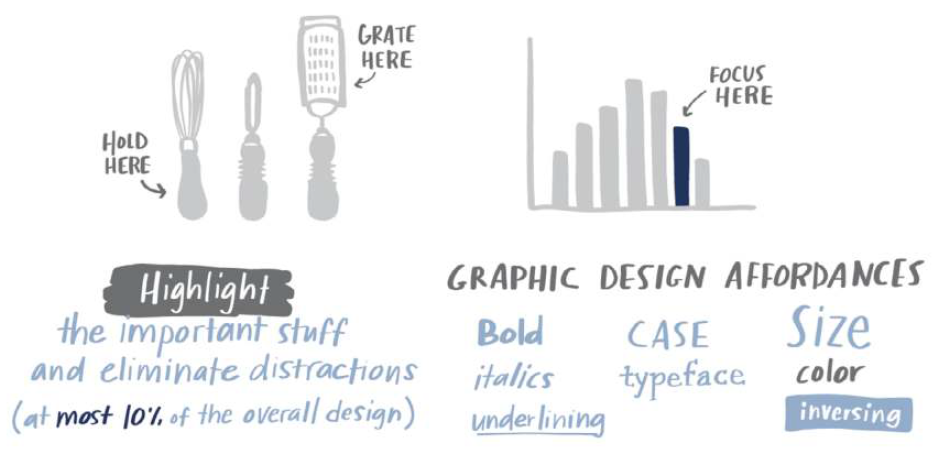 HOLD
HERE
GRATE
HERE
FOCUS
HERE
Highlight
the important stuff
and eliminate distractions
(at most 10% of the overall design)
GRAPHIC DESIGN AFFORDANCES
Bold
italics
underlining
CASE
typeface
Size
color
inversing